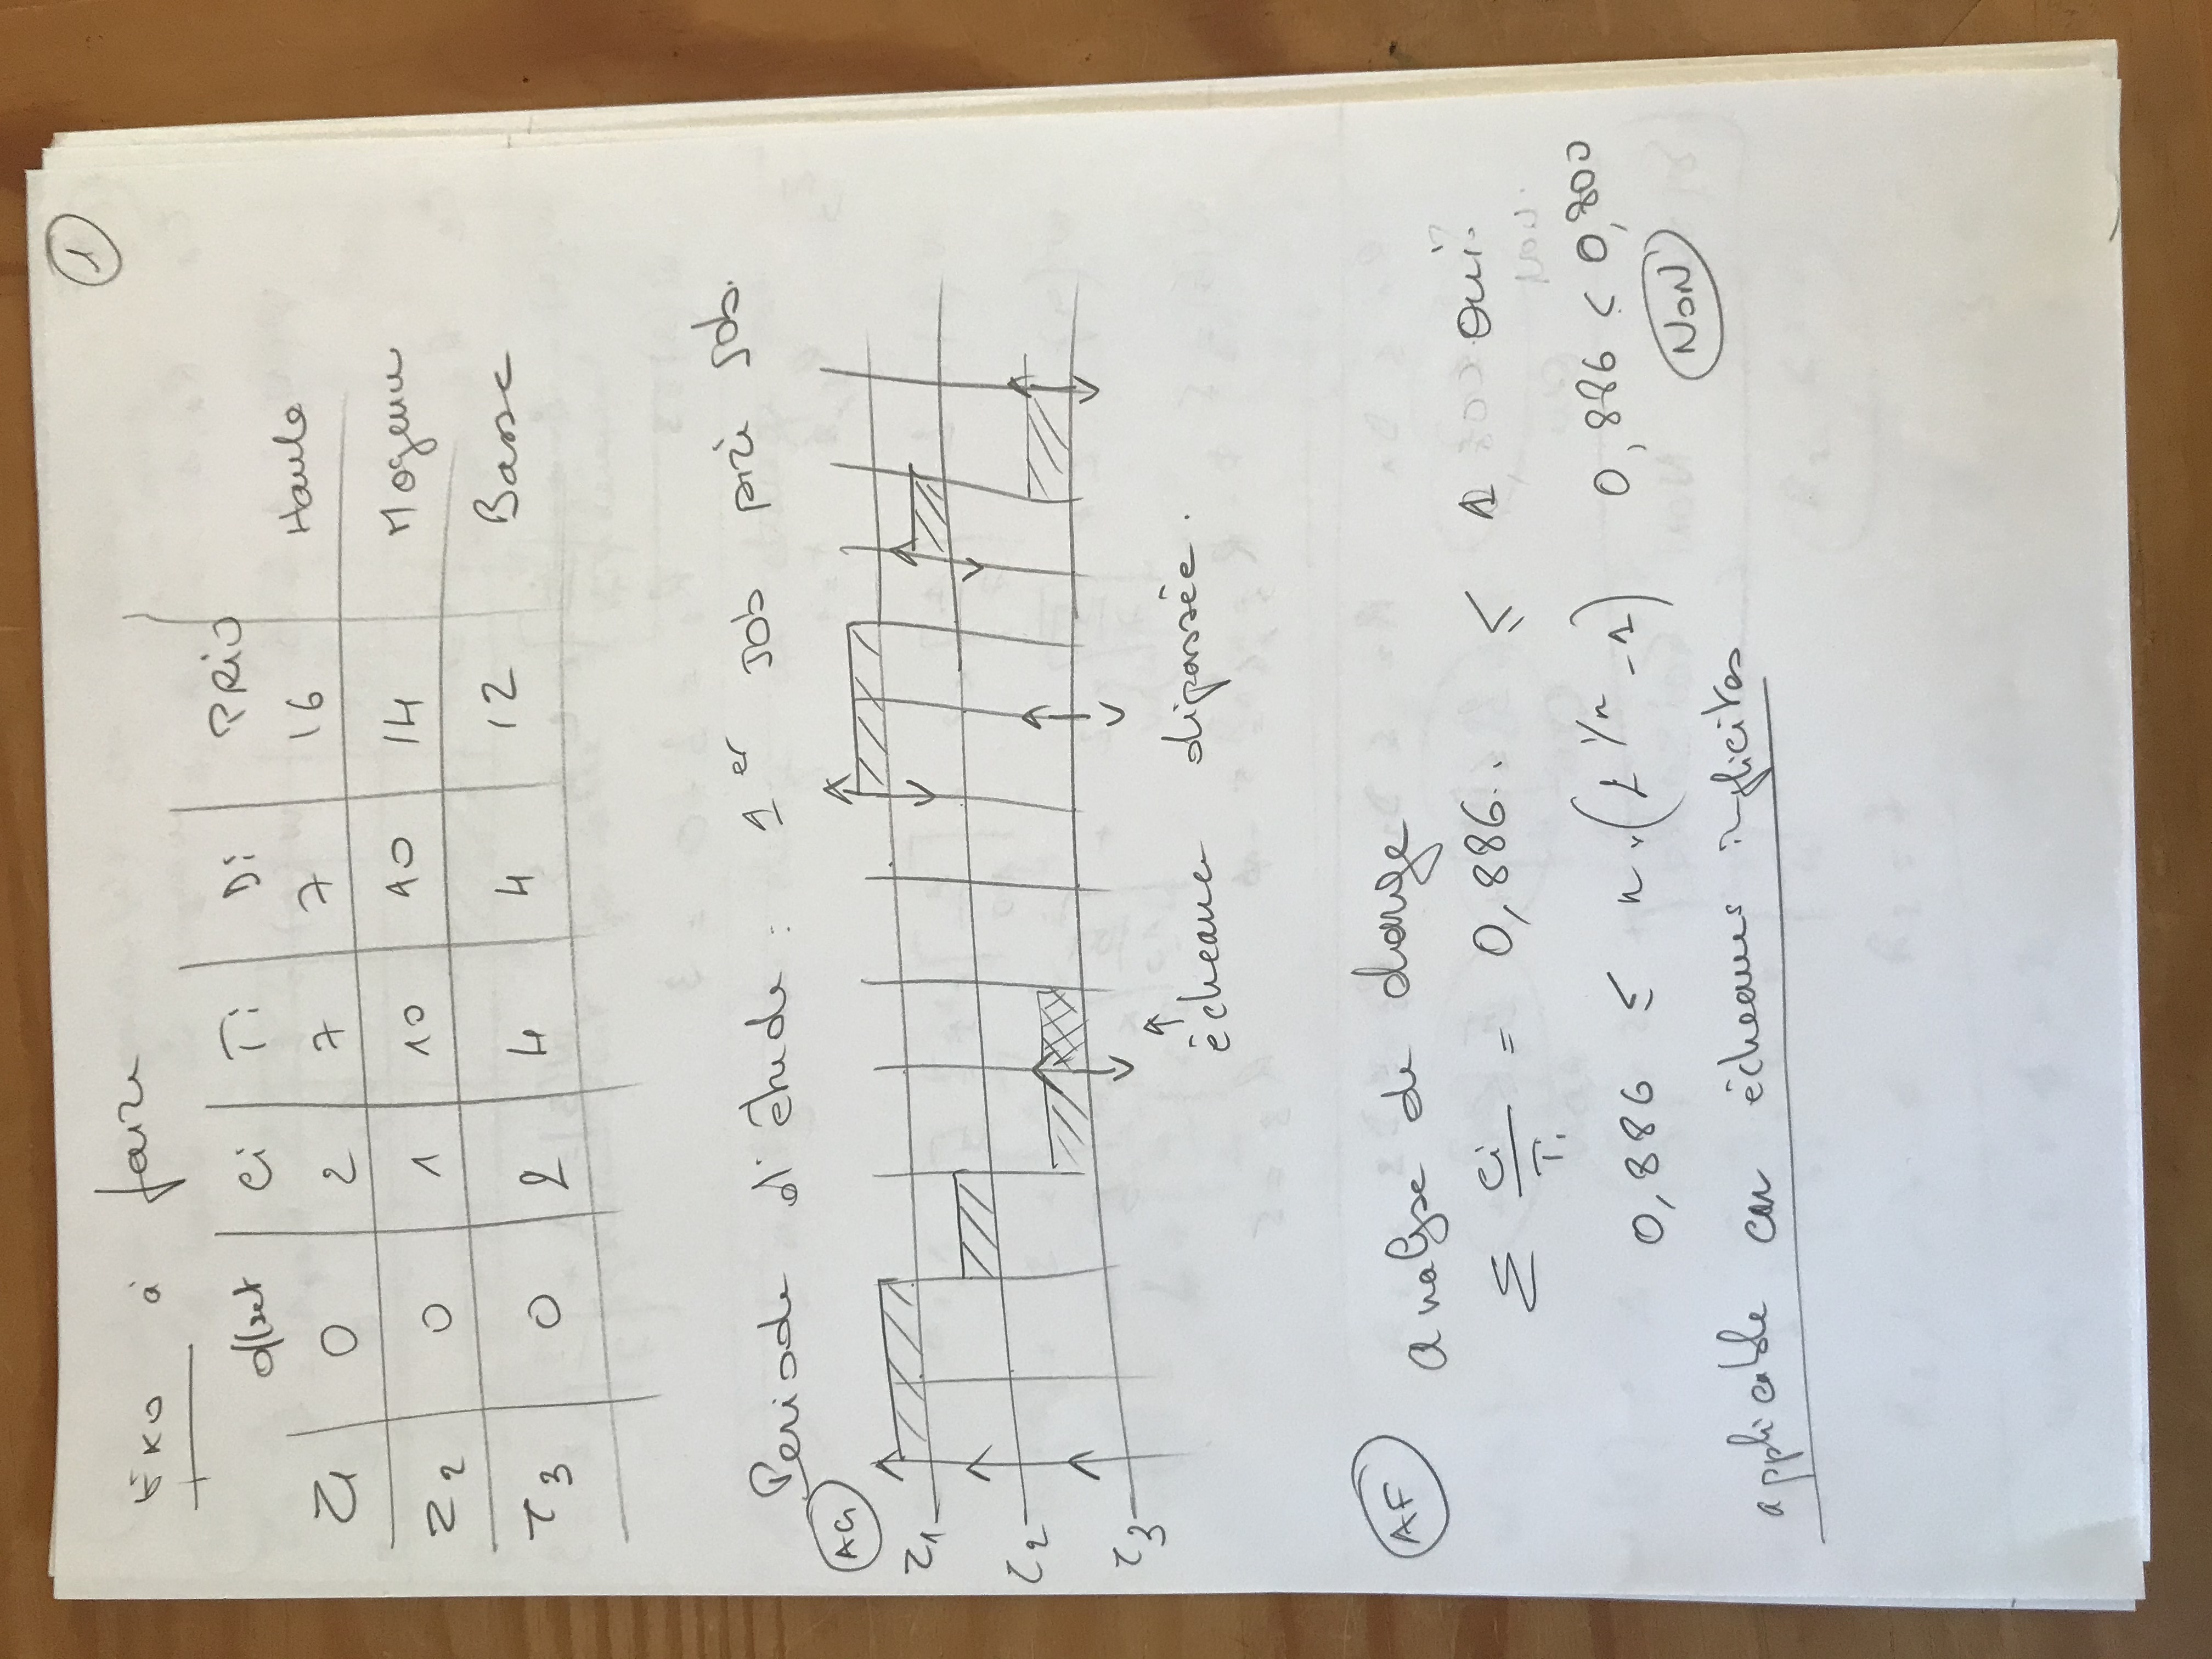 1
Exo à faire
offset Ci Ti Di PRIO
τ1 0 2 7 7 16 Haute
τ2 0 1 10 10 14 Moyenne
τ3 0 2 4 4 12 Basse
Periode d'étude : 1er job prie job.
AG
τ1
τ2
τ3
↑
échéance dépassée.
AF analyse de charge
Σ Ci/Ti = 0,886.. ≤ 1 oui.
0,886 ≤ n.(2^1/n - 1) 0,886 < 0,800
NON
applicable car échéances implicites